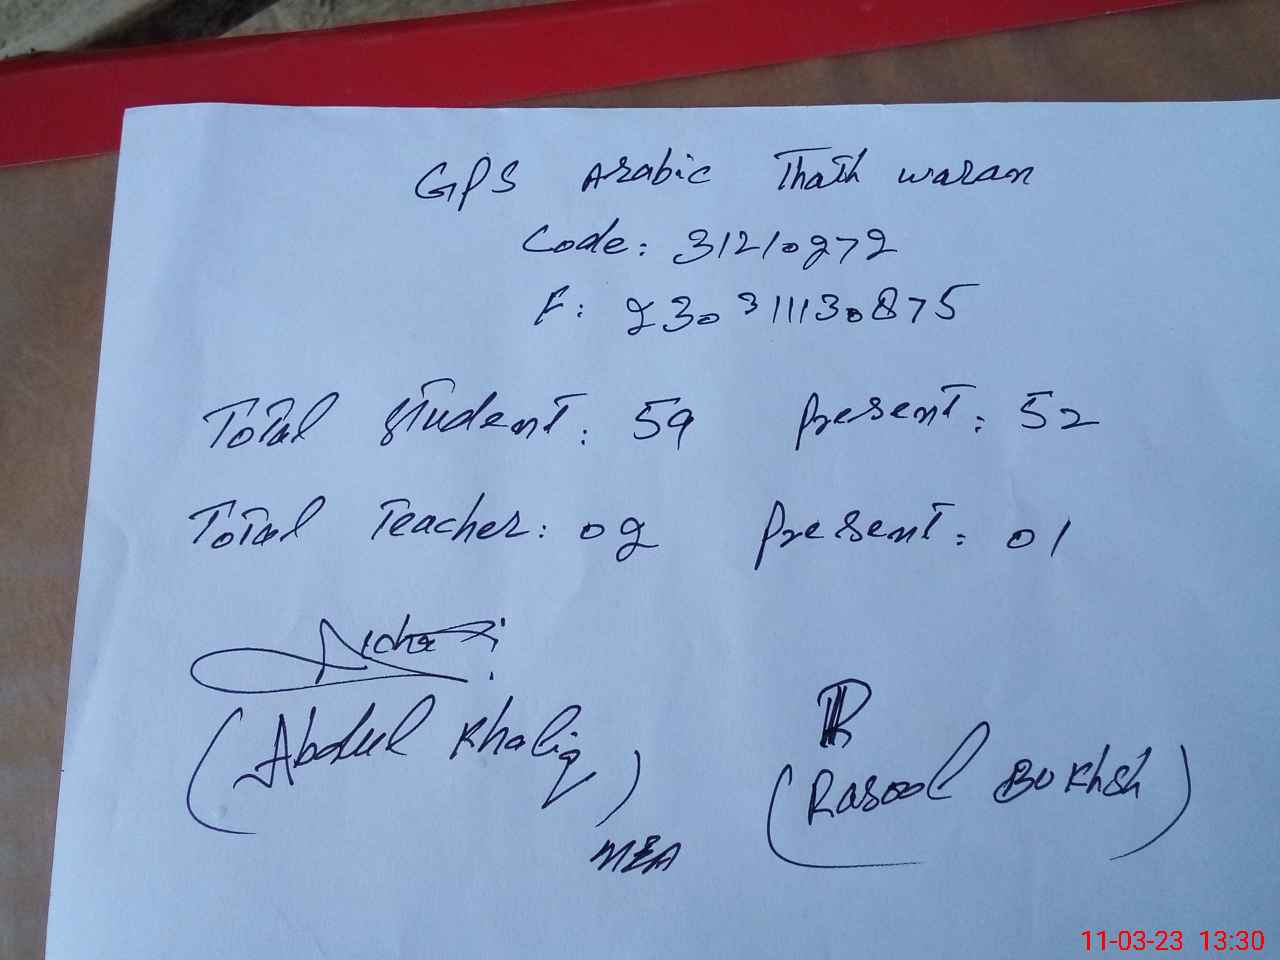 GPS Arabic Thath waran
Code: 31210272
F: 230311130875
Total student: 59 present: 52
Total Teacher: 02 present: 01
(Abdul Khaliq)
(Rasool Bukhsh)
MEA
11-03-23 13:30